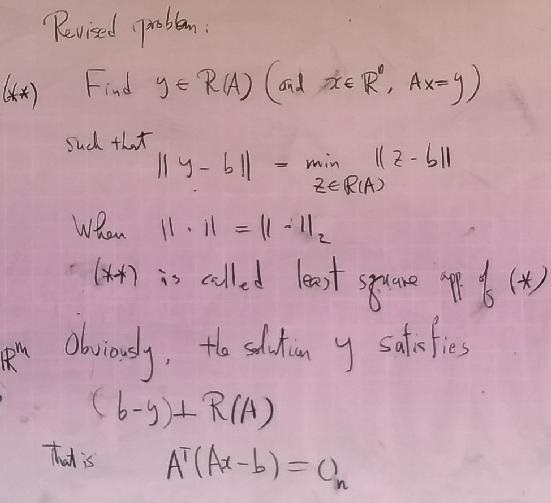 Revised problem:
(**) Find y ∈ R(A) (and x ∈ Rⁿ, Ax=y)
such that
|| y - b || = min || z - b ||
z∈R(A)
When || · || = || · ||₂
(**) is called least square app. of (*)
Rᵐ Obviously, the solution y satisfies
(b-y) ⊥ R(A)
That is Aᵀ(Ax-b) = 0ₙ